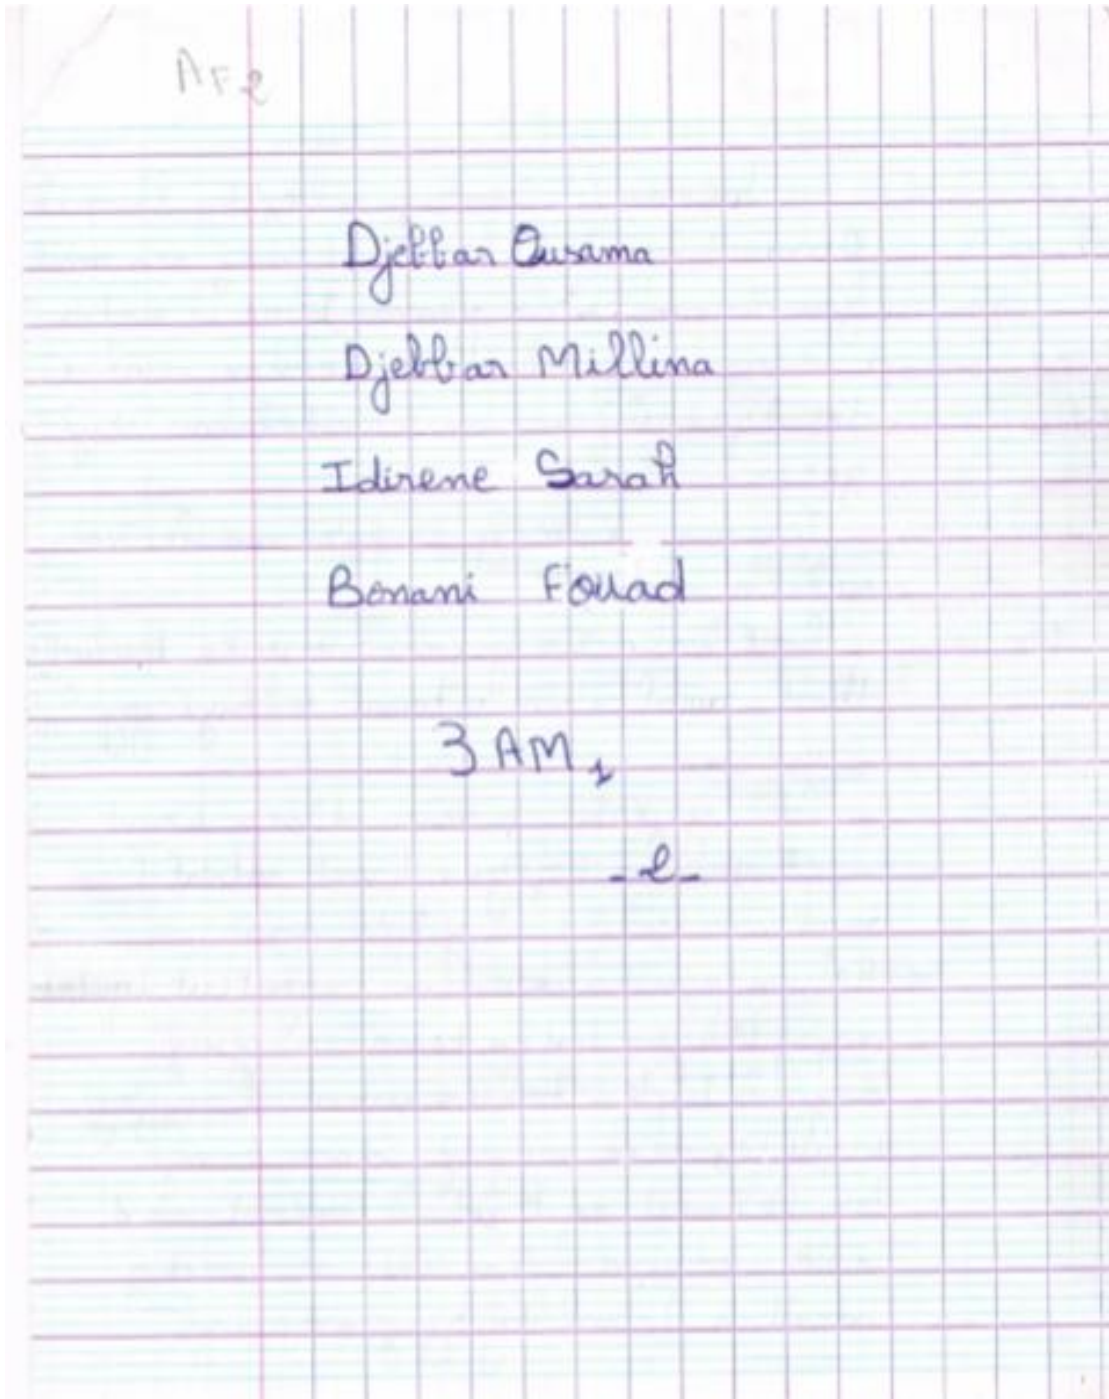 AF2
Djebbar Ousama
Djebbar Millina
Idirene Sarah
Benani Fouad
3 AM 1
-2-